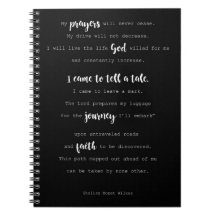 My prayers will never cease.
My drive will not decrease.
I will live the life God willed for me
and constantly increase.
I came to tell a tale.
I came to leave a mark.
The Lord prepares my luggage
for the journey I'll embark"
upon untraveled roads
and faith to be discovered.
This path mapped out ahead of me
can be taken by none other.
Wilkes